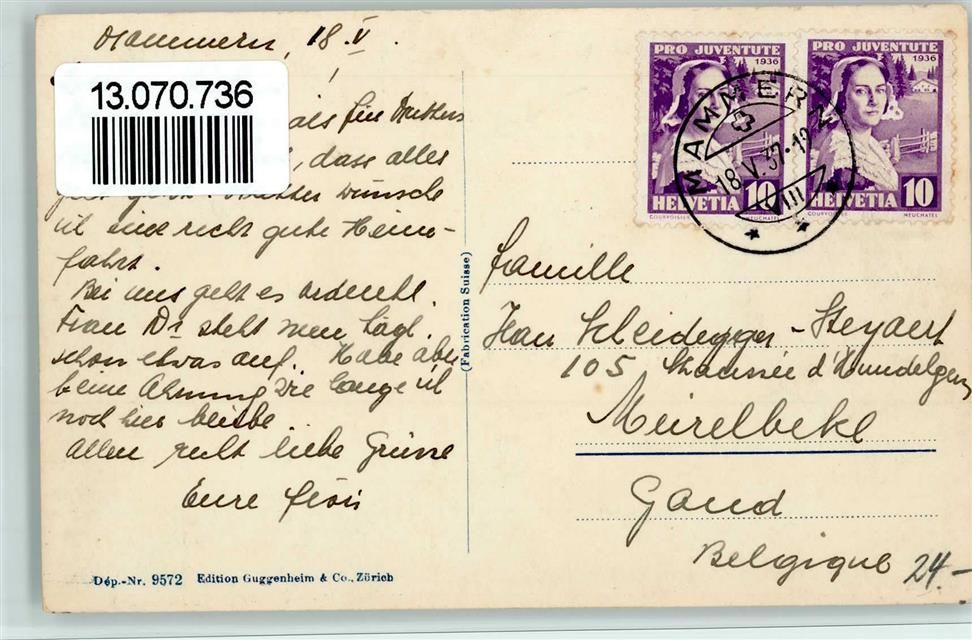 Mammern, 18.V.
13.070.736
als für Mutters
, dass alles
gut geht. Mutter wünsche
ich eine recht gute Heim-
fahrt.
Bei uns geht es ordentl.
Frau Dr steht nun tägl.
schon etwas auf. Habe aber
keine Ahnung wie lange ich
noch hier bleibe
Allen recht liebe Grüsse
Eure
Dép.-Nr. 9572 Edition Guggenheim & Co., Zürich
(Fabrication Suisse)
PRO JUVENTUTE
1936
10
HELVETIA
COURVOISIER
PRO JUVENTUTE
1936
10
HELVETIA
COURVOISIER NEUCHATEL
MAMMERN
18.V.37.-18
VIII
Famille
Han Scheidegger-Steyaert
105 Chaussée d'Hundelgem
Meirelbeke
Gand
Belgique
24.-